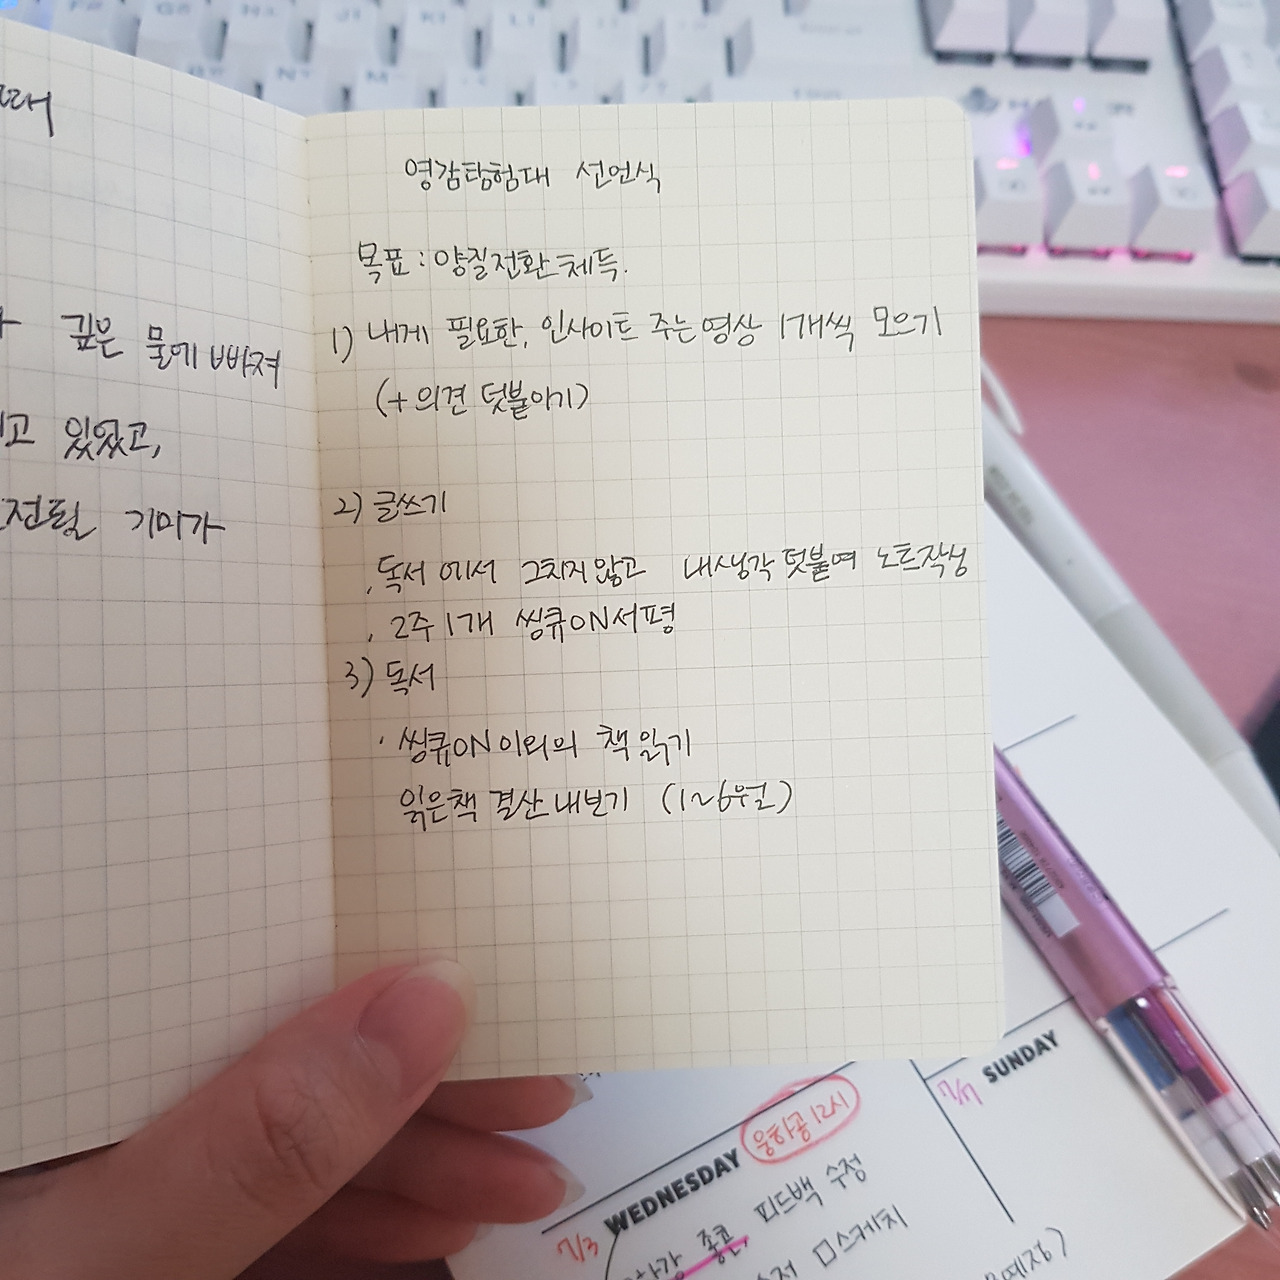 깊은 물에 빠져
있었고,
기미가
영감탐험대 선언식
목표 : 양질전환 체득.
1) 내게 필요한, 인사이트 주는 영상 1개씩 모으기
(+ 의견 덧붙이기)
2) 글쓰기
. 독서에서 그치지 않고 내생각 덧붙여 노트작성
. 2주 1개 씽큐ON서평
3) 독서
· 씽큐ON 이외의 책 읽기
읽은책 결산 내보기 (1~6월)
7/7 SUNDAY
7/3 WEDNESDAY 웅하공 12시
줌콘, 피드백 수정
□스케치